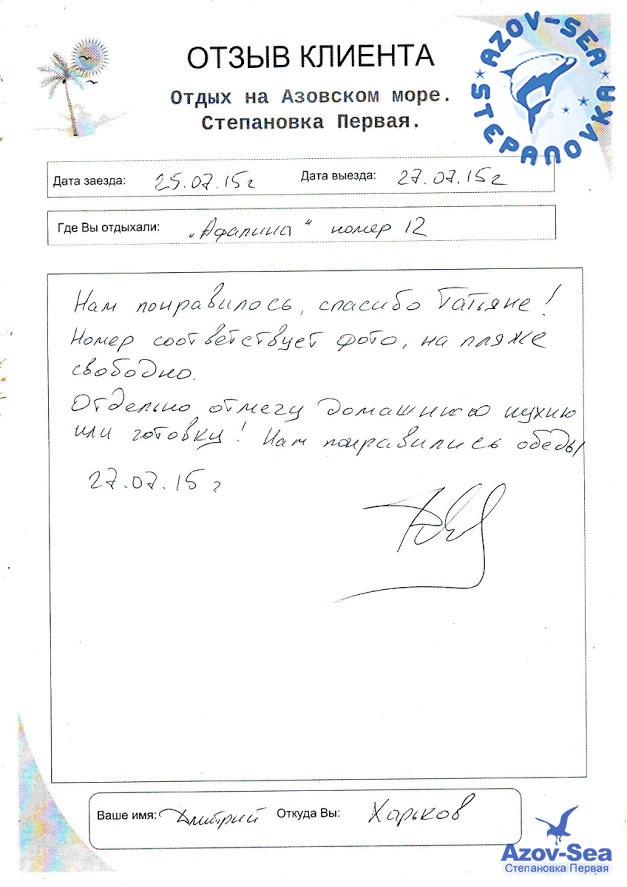 ОТЗЫВ КЛИЕНТА
AZOV-SEA
STEPANOVKA
Отдых на Азовском море.
Степановка Первая.
Дата заезда: 25.07.15г Дата выезда: 27.07.15г
Где Вы отдыхали: „Афалина" номер 12
Нам понравилось, спасибо Татьяне!
Номер соответствует фото, на пляже
свободно.
Отдельно отмечу домашнюю кухню
или готовку! Нам понравились обеды
27.07.15 г
Ваше имя: Дмитрий Откуда Вы: Харьков
Azov-Sea
Степановка Первая